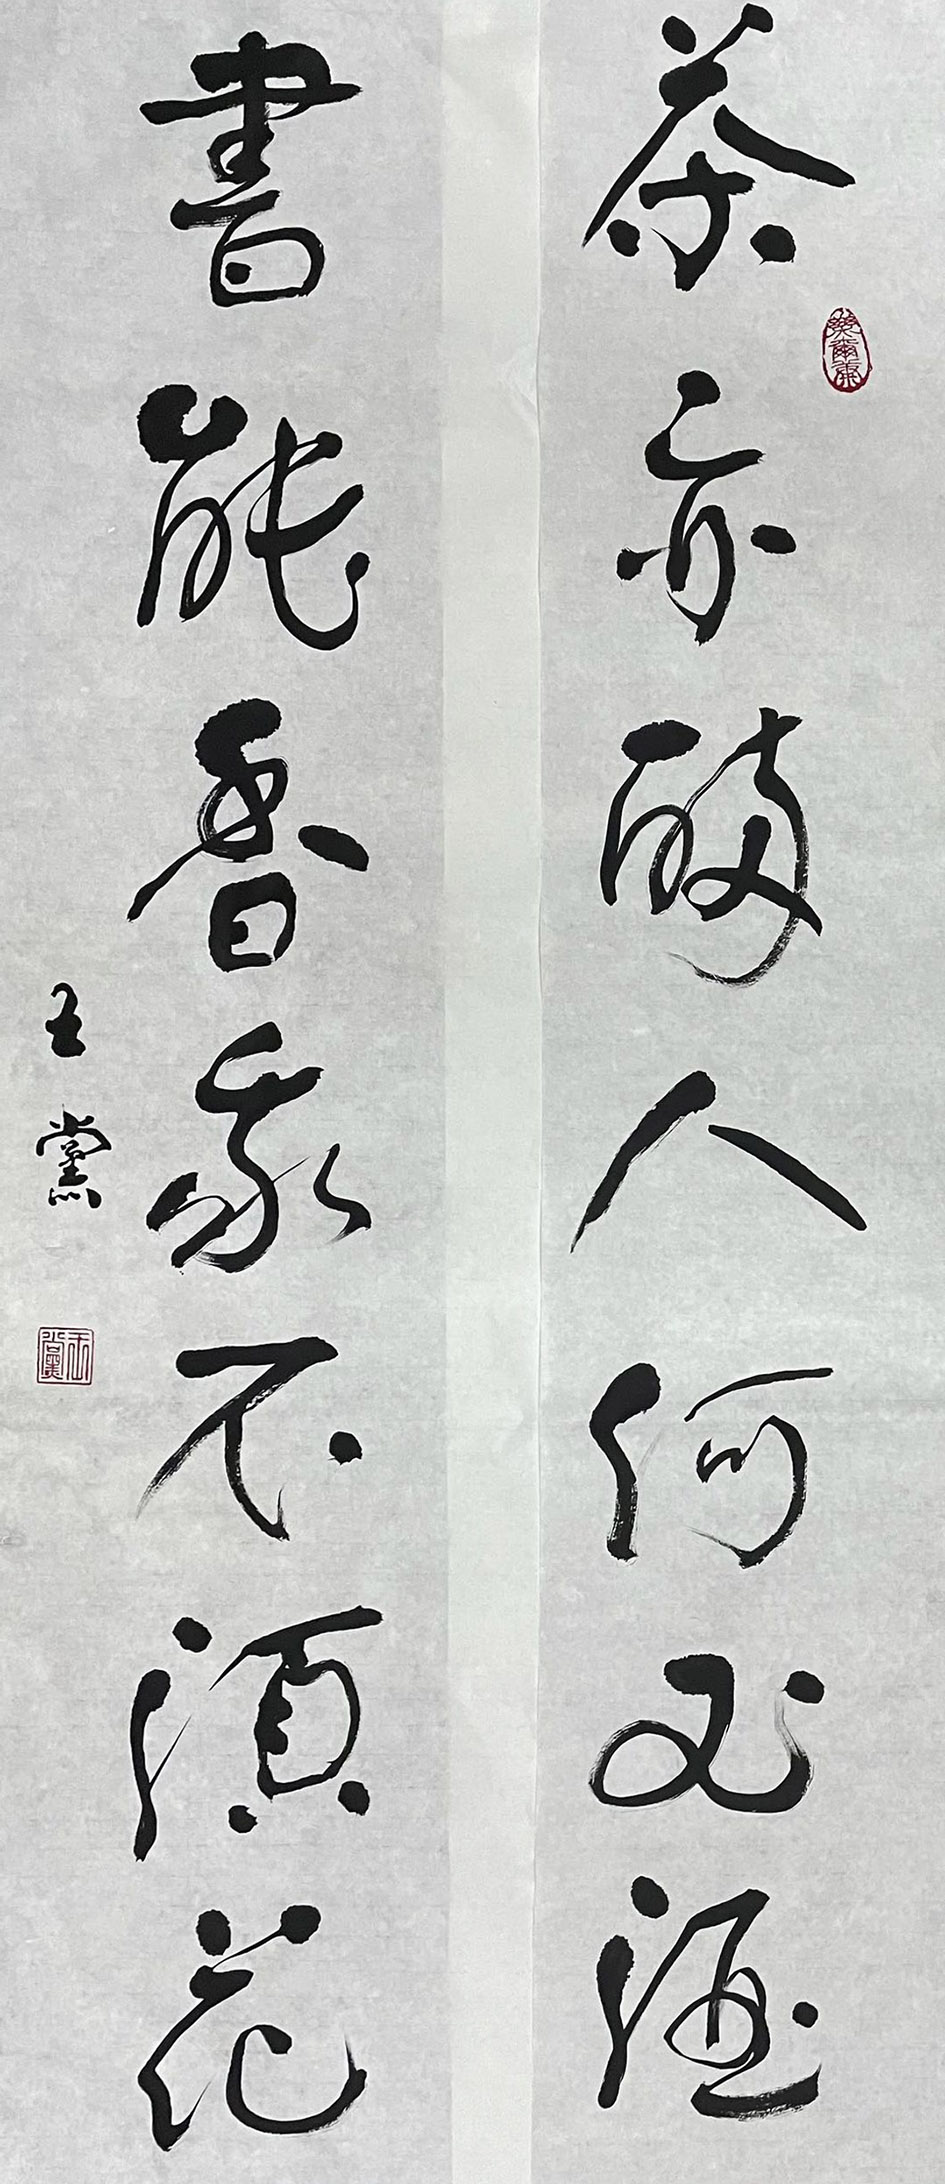 茶亦醉人何必酒
書能香我不須花
王黨